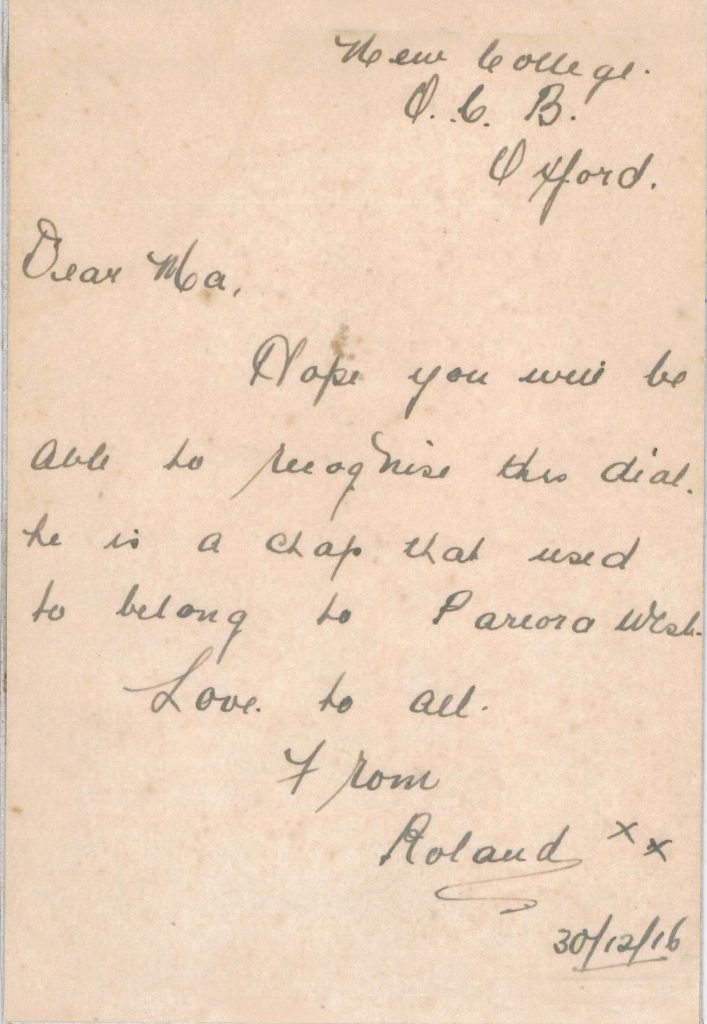 New College.
O. C. B.
Oxford.
Dear Ma,
Hope you will be
able to recognise this dial.
he is a chap that used
to belong to Pareora West.
Love. to all.
From
Roland xx
30/12/16